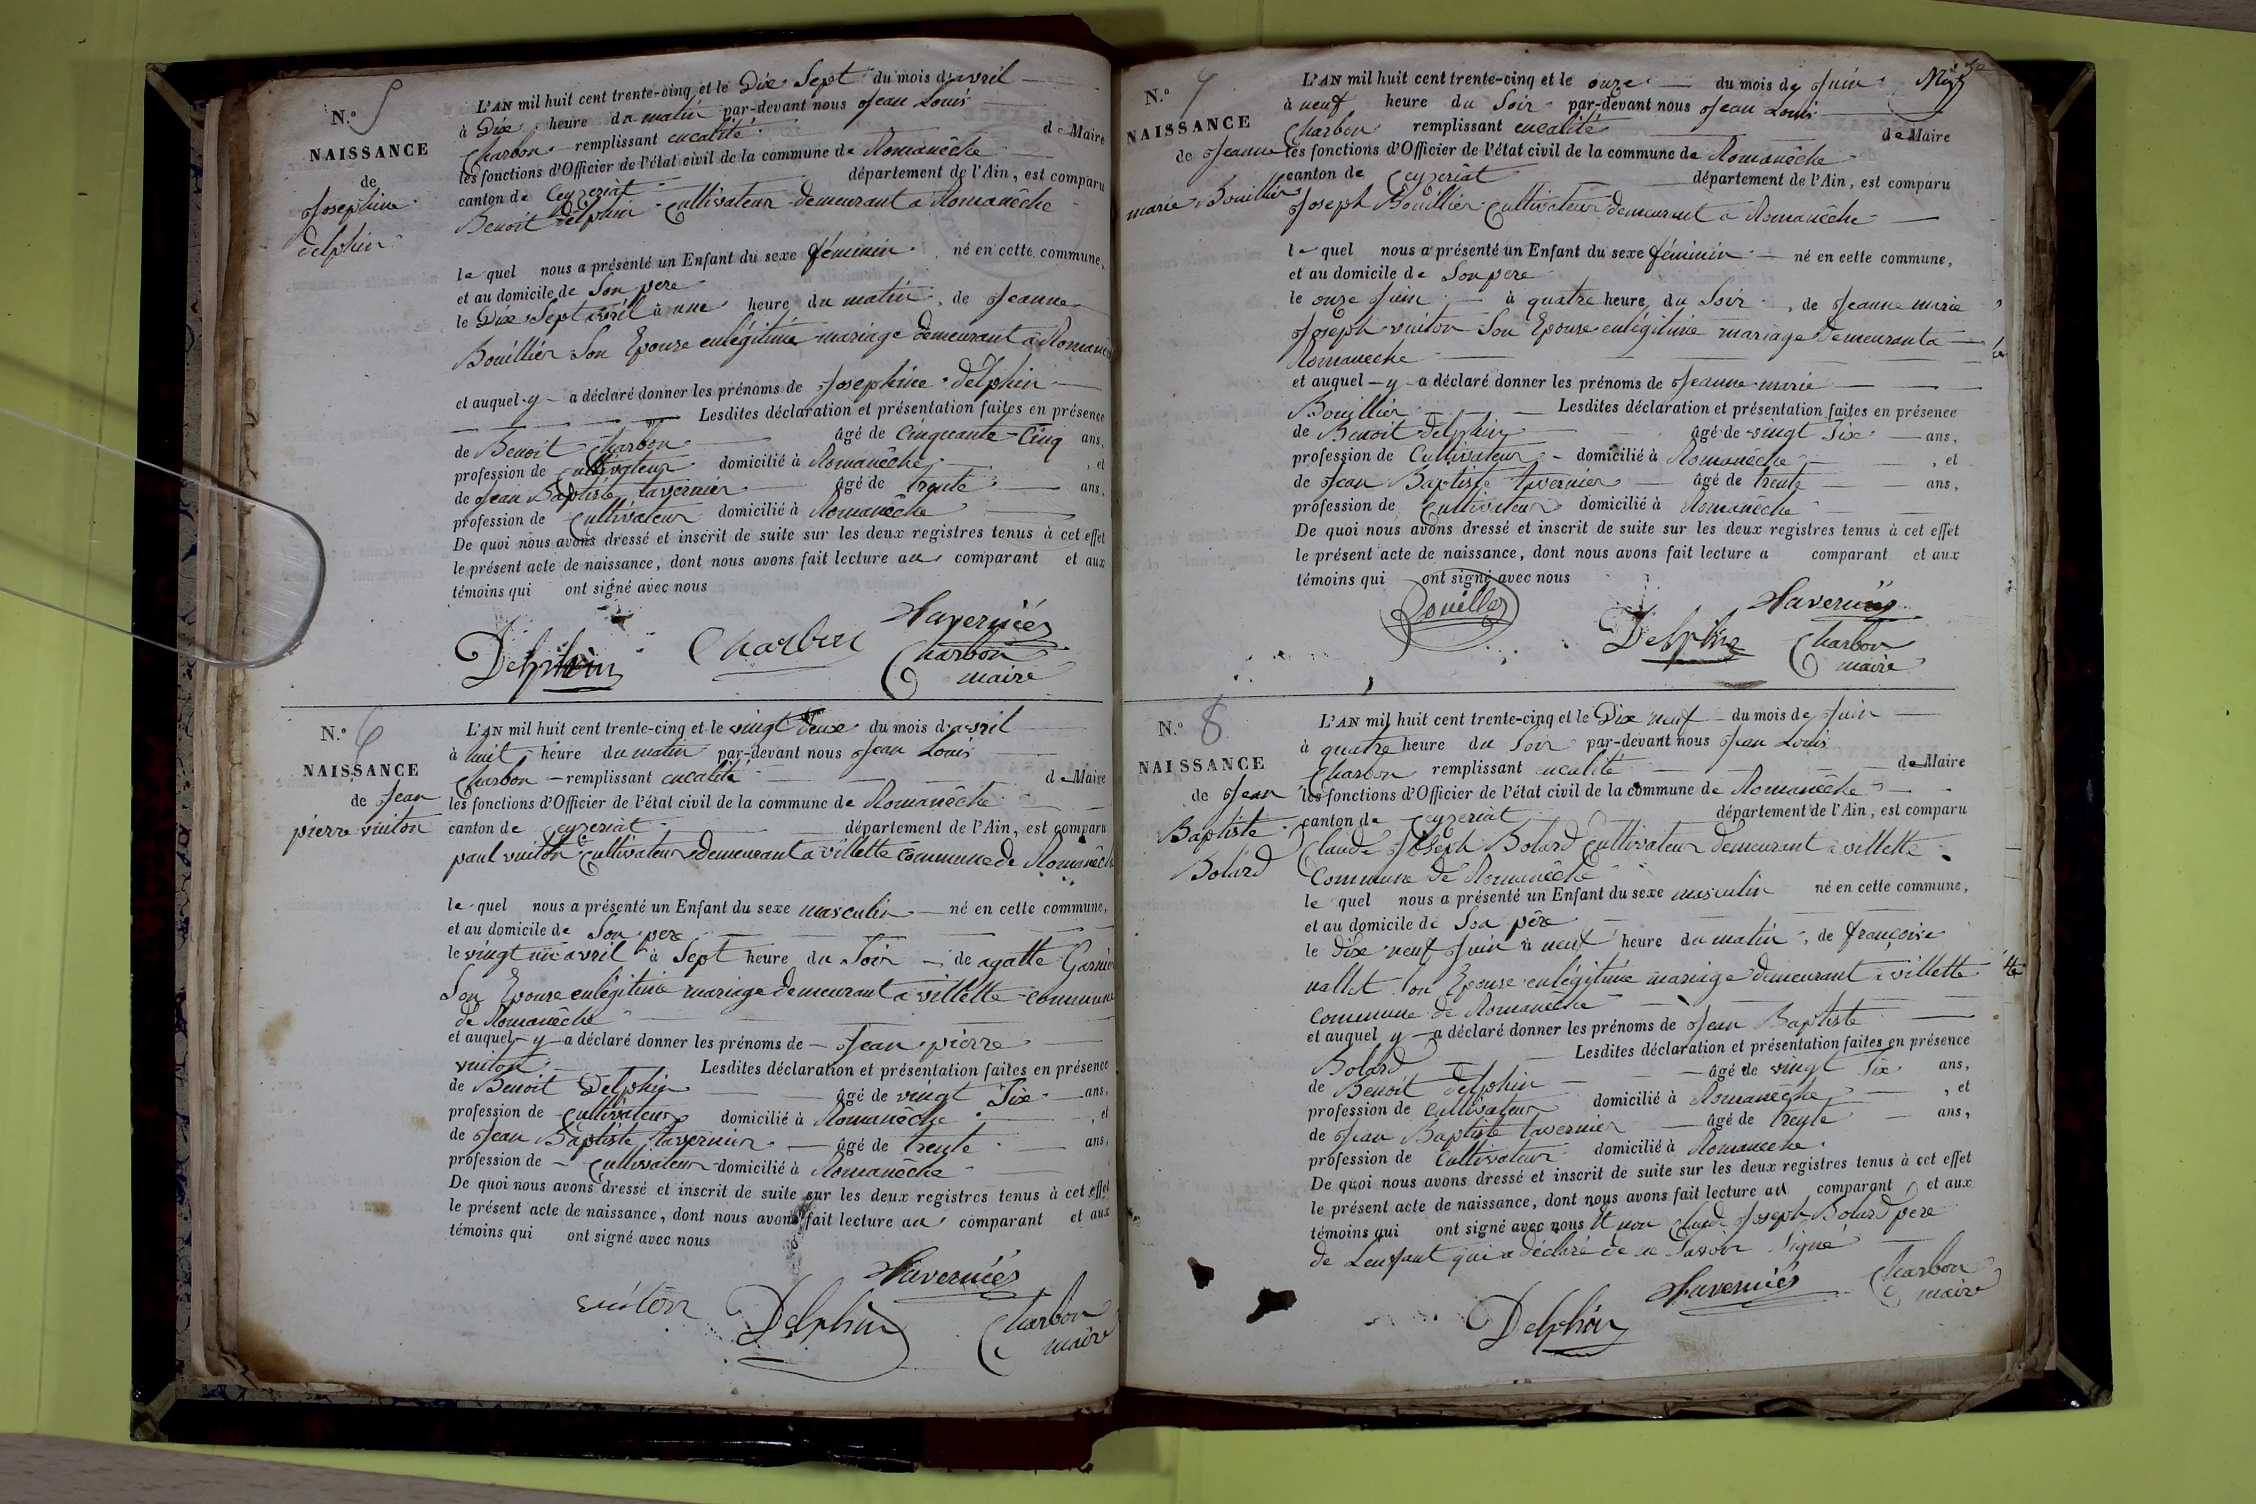 N.o 5
NAISSANCE
de
Josephine
delphin
L'AN mil huit cent trente-cinq et le Dix Sept du mois d'avril
à Dix heure du matin par-devant nous Jean Louis
Charbon remplissant enqalité de Maire
les fonctions d'Officier de l'état civil de la commune de Romanêche
canton de Ceyzeriat département de l'Ain, est comparu
Benoit delphin Cultivateur demeurant a Romanêche
le quel nous a présenté un Enfant du sexe féminin né en cette commune,
et au domicile de Son pere
le Dix Sept avril à une heure du matin, de Jeanne
Bouillier Son Epouse enlégitime mariage demeurant a
et auquel y a déclaré donner les prénoms de Josephine delphin
Lesdites déclaration et présentation faites en présence
de Benoit Charbon âgé de Cinquante-Cinq ans,
profession de Cultivateur domicilié à Romanêche, et
de Jean Baptiste tavernier âgé de trente ans,
profession de Cultivateur domicilié à Romanêche
De quoi nous avons dressé et inscrit de suite sur les deux registres tenus à cet effet
le présent acte de naissance, dont nous avons fait lecture au comparant et aux
témoins qui ont signé avec nous
Taverniér
Delphin Charbon Charbon
maire
N.o 6
NAISSANCE
de Jean
pierre vuiton
L'AN mil huit cent trente-cinq et le vingt Deux du mois d'avril
à huit heure du matin par-devant nous Jean Louis
Charbon remplissant enqalité de Maire
les fonctions d'Officier de l'état civil de la commune de Romanêche
canton de Ceyzeriat département de l'Ain, est comparu
paul vuiton Cultivateur demeurant a villette Commune de Romanêche
le quel nous a présenté un Enfant du sexe masculin né en cette commune,
et au domicile de Son pere
le vingt un avril à Sept heure du Soir de agatte Garnier
Son Epouse enlégitime mariage demeurant a villette commune
de Romanêche
et auquel y a déclaré donner les prénoms de Jean pierre
vuiton Lesdites déclaration et présentation faites en présence
de Benoit Delphin âgé de vingt Six ans,
profession de Cultivateur domicilié à Romanêche, et
de Jean Baptiste tavernier âgé de trente ans,
profession de Cultivateur domicilié à Romanêche
De quoi nous avons dressé et inscrit de suite sur les deux registres tenus à cet effet
le présent acte de naissance, dont nous avons fait lecture au comparant et aux
témoins qui ont signé avec nous
Taverniér
vuiton Delphin Charbon
maire
N.o 7
NAISSANCE
de Jeanne
marie Bouillier
L'AN mil huit cent trente-cinq et le onze du mois de Juin
à neuf heure du Soir par-devant nous Jean Louis
Charbon remplissant enqalité de Maire
les fonctions d'Officier de l'état civil de la commune de Romanêche
canton de Ceyzeriat département de l'Ain, est comparu
Joseph Bouillier Cultivateur demeurant a Romanêche
le quel nous a présenté un Enfant du sexe féminin né en cette commune,
et au domicile de Son pere
le onze Juin à quatre heure du Soir, de Jeanne marie
Joseph vuiton Son Epouse enlégitime mariage demeurant a
Romaneche
et auquel y a déclaré donner les prénoms de Jeanne marie
Bouillier Lesdites déclaration et présentation faites en présence
de Benoit delphin âgé de vingt Six ans,
profession de Cultivateur domicilié à Romanêche, et
de Jean Baptiste tavernier âgé de trente ans,
profession de Cultivateur domicilié à Romanêche
De quoi nous avons dressé et inscrit de suite sur les deux registres tenus à cet effet
le présent acte de naissance, dont nous avons fait lecture a comparant et aux
témoins qui ont signé avec nous
Bouiller Taverniér
Delphin Charbon
maire
N.o 8
NAISSANCE
de Jean
Baptiste
Bolard
L'AN mil huit cent trente-cinq et le Dix neuf du mois de Juin
à quatre heure du Soir par-devant nous Jean Louis
Charbon remplissant enqalité de Maire
les fonctions d'Officier de l'état civil de la commune de Romanêche
canton de Ceyzeriat département de l'Ain, est comparu
Claude Joseph Bolard Cultivateur demeurant a villette
Commune de Romanêche
le quel nous a présenté un Enfant du sexe masculin né en cette commune,
et au domicile de Son père
le dix neuf Juin à neuf heure du matin, de françoise
nallet son Epouse enlégitime mariage demeurant a villette
commune de Romanêche
et auquel y a déclaré donner les prénoms de Jean Baptiste
Bolard Lesdites déclaration et présentation faites en présence
de Benoit delphin âgé de vingt Six ans,
profession de Cultivateur domicilié à Romanêche, et
de Jean Baptiste tavernier âgé de trente ans,
profession de Cultivateur domicilié à Romaneche
De quoi nous avons dressé et inscrit de suite sur les deux registres tenus à cet effet
le présent acte de naissance, dont nous avons fait lecture au comparant et aux
témoins qui ont signé avec nous et non Claude Joseph Bolard pere
de Lenfant qui a déclaré de ne Savoir Signé
Taverniér Charbon
Delphin maire